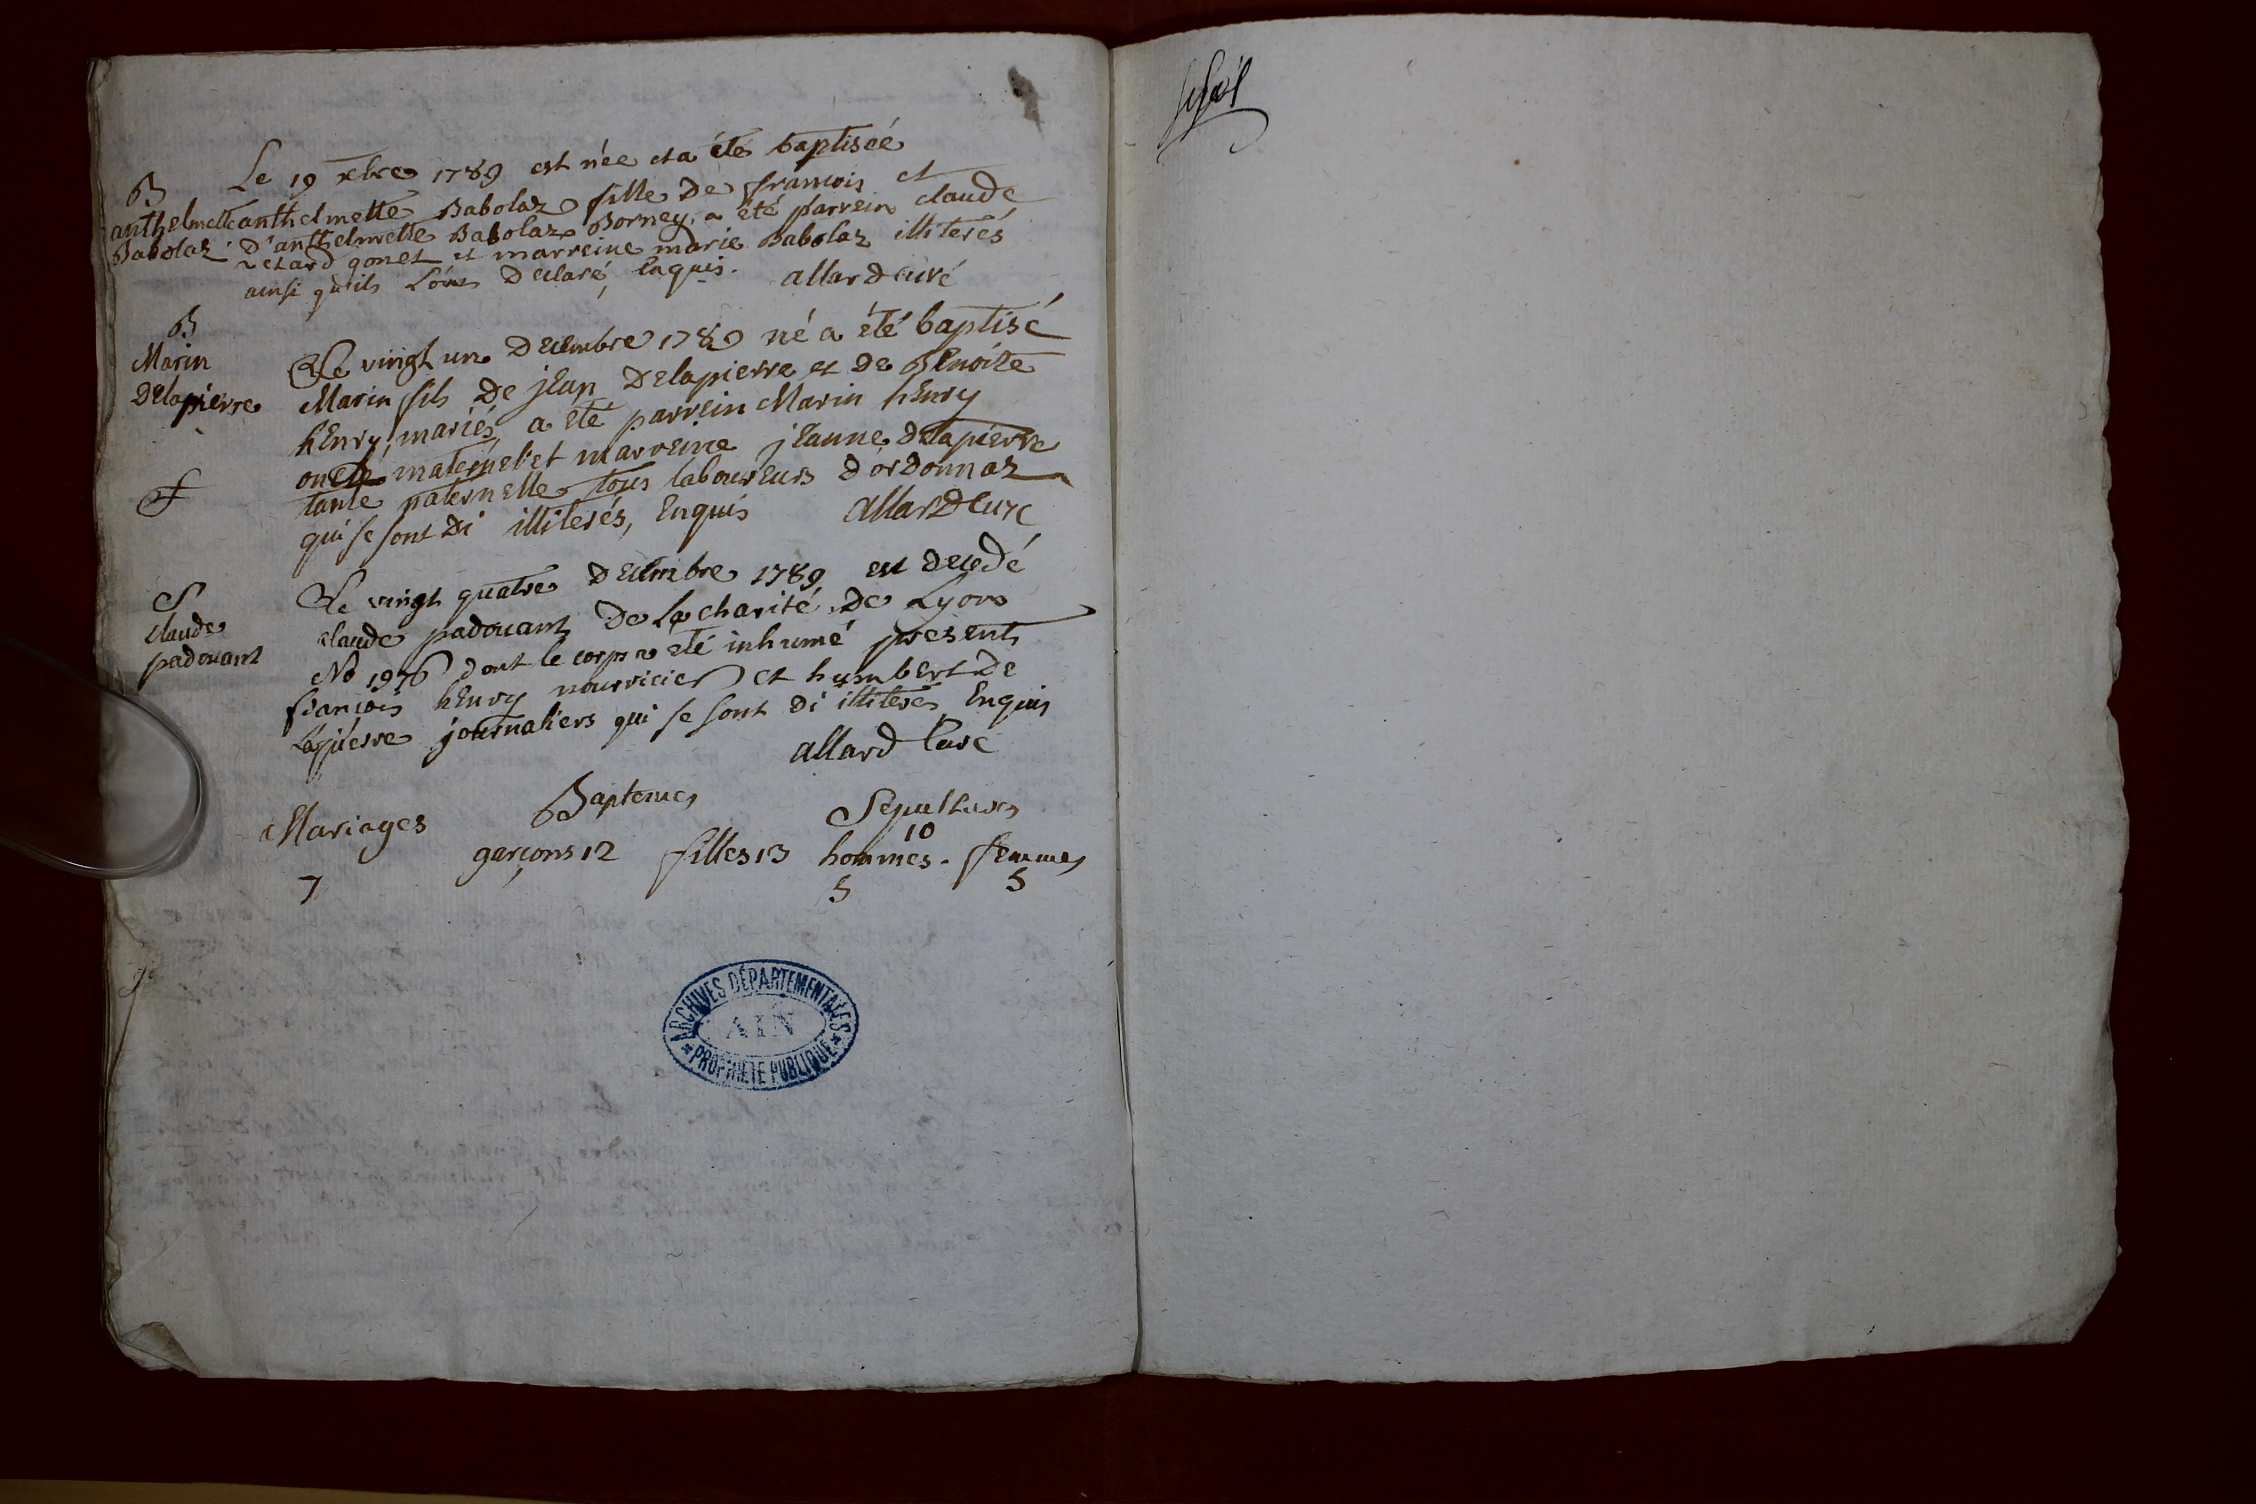 Le 19 xbre 1789 est née et a été baptisée
B
anthelmette
Babolaz
anthelmette Babolaz fille de francois et
D'anthelmette Babolaz Borney, a été parrein claude
gonet et marreine marie Babolaz illiterés
ainsi qu'ils L'ont Declaré, Enquis. allard curé
B
Marin
Delapierre
Le vingt un Decembre 1789 né a été baptisé
Marin fils De jean Delapierre et de Benoite
henry, mariés, a eté parrein Marin henry
oncle maternel et marreine jeanne delapierre
tante paternelle tous laboureurs d'ordonnaz
qui se sont Di illiterés, Enquis allard curé
f
S
claude
padouant
Le vingt quatre Decembre 1789 est decedé
claude padouant De la charité de Lyon
No 1976 dont le corps a eté inhumé presents
françois henry nourricier et humbert de
Lapierre journaliers qui se sont di illiterés Enquis
allard Curé
Mariages Baptemes Sepultures
10
garçons 12 filles 13 hommes. femmes
7 5 5
ARCHIVES DÉPARTEMENTALES
AIN
* PROPRIÉTÉ PUBLIQUE *